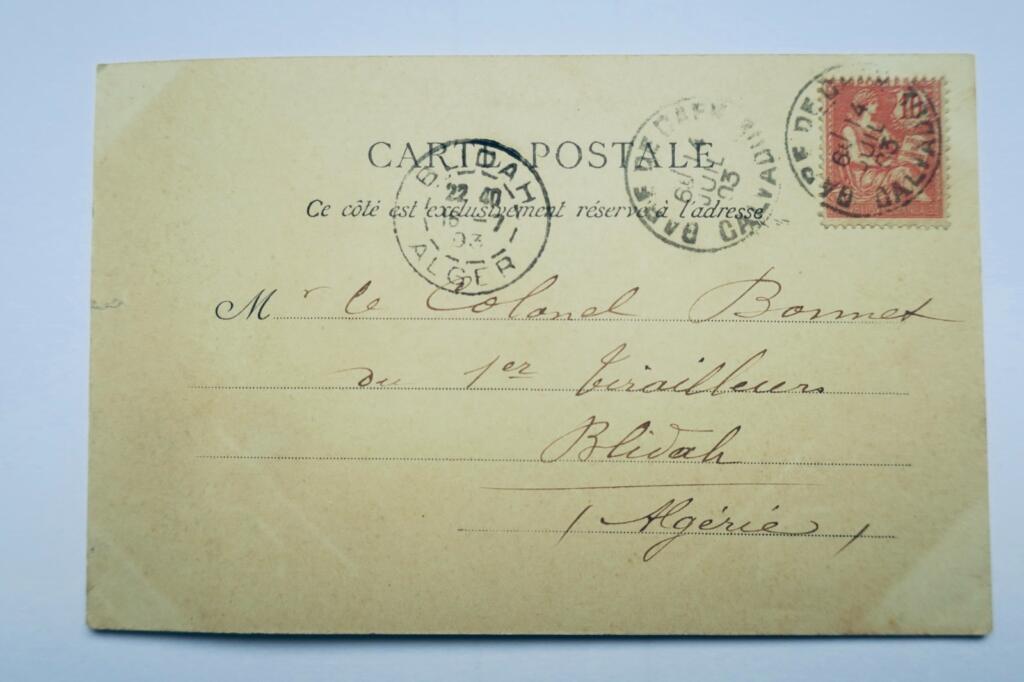 CARTE POSTALE
Ce côté est exclusivement réservé à l'adresse
BLIDAH
22 40
16 -7
03
ALGER
GARE DE CAEN
6E/ 14
JUIL
03
CALVADOS
GARE DE
6E/ 14
JUIL
03
CALVADOS
10
Mr le Colonel Bonnet
du 1er Tirailleurs
Blidah
(Algérie)